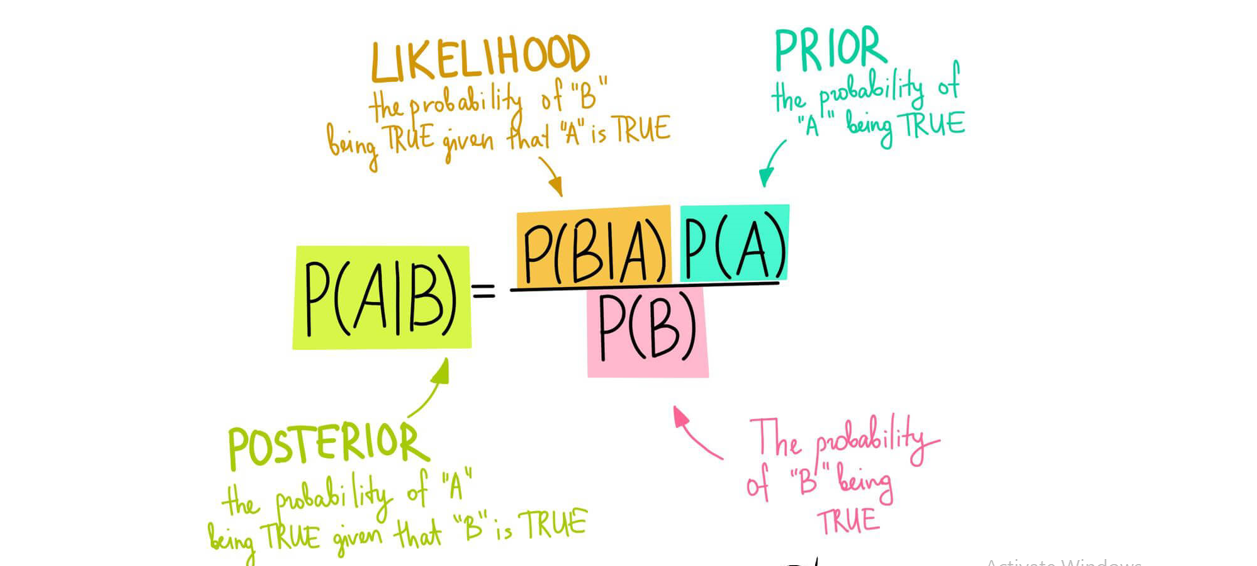 LIKELIHOOD
the probability of "B"
being TRUE given that "A" is TRUE
PRIOR
the probability of
"A" being TRUE
P(A|B) = P(B|A) P(A)
P(B)
POSTERIOR
the probability of "A"
being TRUE given that "B" is TRUE
The probability
of "B" being
TRUE
Activate Windows